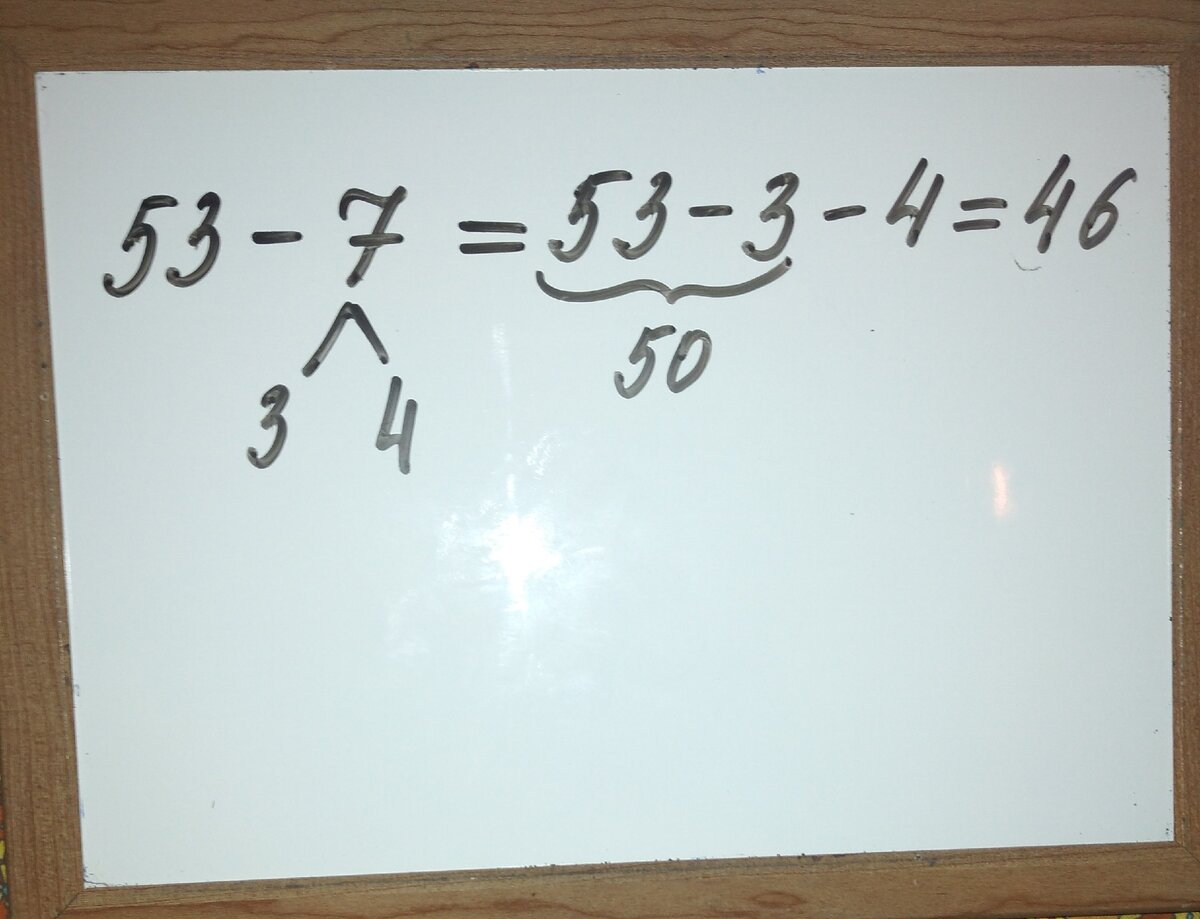 53 - 7 = 53 - 3 - 4 = 46
50
3 4